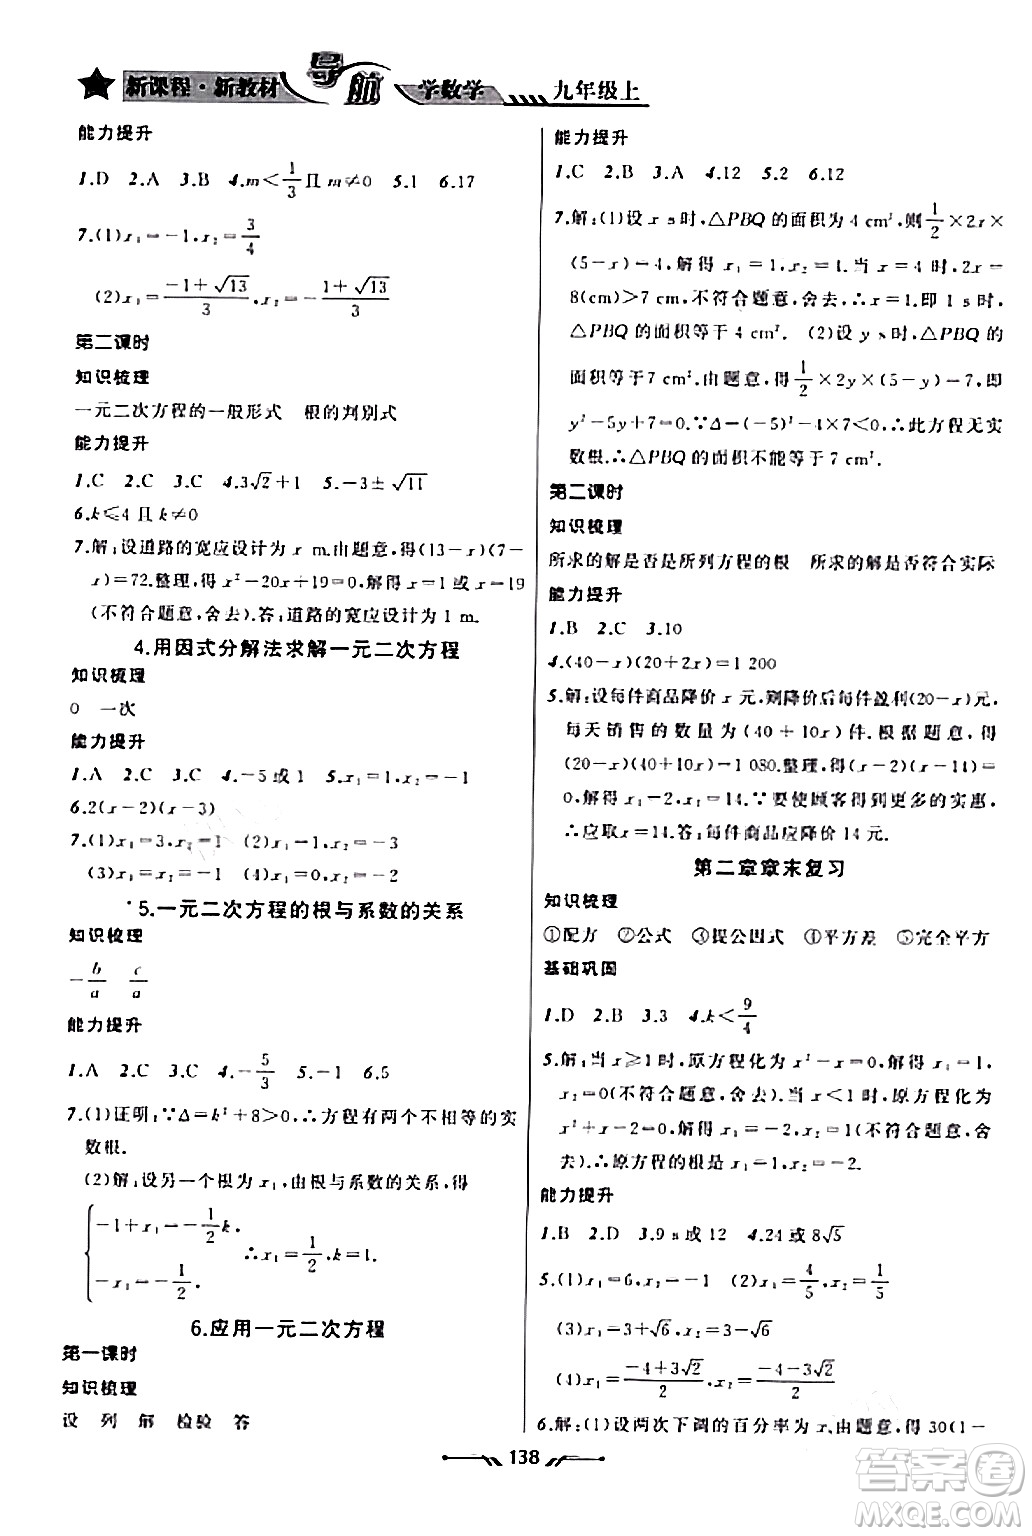 新课程·新教材 导航 学数学 九年级上
能力提升
1.D 2.A 3.B 4.m<1/3且m≠0 5.1 6.17
7.(1)x₁=-1,x₂=3/4
(2)x₁=(-1+√13)/3,x₂=
第二课时
知识梳理
一元二次方程的一般形式 根的判别式
能力提升
1.C 2.C 3.C 4.3√2+1 5.-3±√11
6.k≤4且k≠0
7.解:设道路的宽应设计为x m.由题意,得(13-x)(7-
x)=72.整理,得x²-20x+19=0.解得x=1或x=19
(不符合题意,舍去).答:道路的宽应设计为1 m.
4.用因式分解法求解一元二次方程
知识梳理
0 一次
能力提升
1.A 2.C 3.C 4.-5或1 5.x₁=4,x₂=-1
6.2(x-2)(x-3)
7.(1)x₁=3,x₂=9 (2)x₁=1,x₂=-3
(3)x₁=x₂=1 (4)x₁=0,x₂=-4
5.一元二次方程的根与系数的关系
知识梳理
-b/a c/a
能力提升
1.A 2.C 3.D 4.-5/3 5.-1 6.5
7.(1)证明:∵Δ=k²+8>0,∴方程有两个不相等的实
数根.
(2)解:设另一个根为x₁,由根与系数的关系,得
{-1+x₁=-1/2k,
∴x₁=1/2,k=1.
-x₁=-1/2
6.应用一元二次方程
第一课时
知识梳理
设 列 解 检验 答
能力提升
1.C 2.B 3.A 4.12 5.2 6.12
7.解:(1)设x s时,△PBQ的面积为4 cm²,则1/2×2x×
(5-x)=4,解得x₁=1,x₂=4.当x=4时,2x=
8(cm)>7 cm,不符合题意,舍去,∴x=1.即1 s时,
△PBQ的面积等于4 cm². (2)设y s时,△PBQ的
面积等于7 cm².由题意,得1/2×2y×(5-y)=7,即
y²-5y+7=0.∵Δ=(-5)²-4×7<0,∴此方程无实
数根.∴△PBQ的面积不能等于7 cm².
第二课时
知识梳理
所求的解是否是所列方程的根 所求的解是否符合实际
能力提升
1.B 2.C 3.10
4.(40-x)(20+2x)=1 200
5.解:设每件商品降价x元,则降价后每件盈利(20-x)元,
每天销售的数量为(40+10x)件.根据题意,得
(20-x)(40+10x)=1 080.整理,得(x-2)(x-14)=
0,解得x₁=2,x₂=14.∵要使顾客得到更多的实惠,
∴应取x=14.答:每件商品应降价14元.
第二章章末复习
知识梳理
①配方 ②公式 ③提公因式 ④平方差 ⑤完全平方
基础巩固
1.D 2.B 3.3 4.k<9/4
5.解:当x≥1时,原方程化为x²-x=0,解得x₁=1,
x₂=0(不符合题意,舍去).当x<1时,原方程化为
x²+x-2=0,解得x₁=-2,x₂=1(不符合题意,舍
去).∴原方程的根是x₁=1,x₂=-2.
能力提升
1.B 2.D 3.9 s或12 4.24或8√5
5.(1)x₁=6,x₂=-1 (2)x₁=4/5,x₂=1/5
(3)x₁=3+√6,x₂=3-√6
(4)x₁=(-4+3√2)/2,x₂=(-4-3√2)/2
6.解:(1)设两次下调的百分率为x,由题意,得30(1-
138
答案圈
MXQE.COM